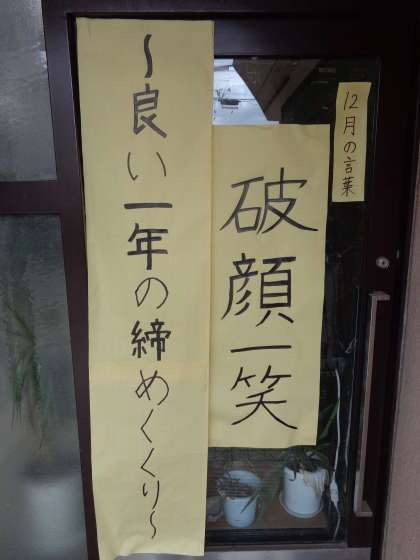 12月の言葉
破顔一笑
〜良い一年の締めくくり〜